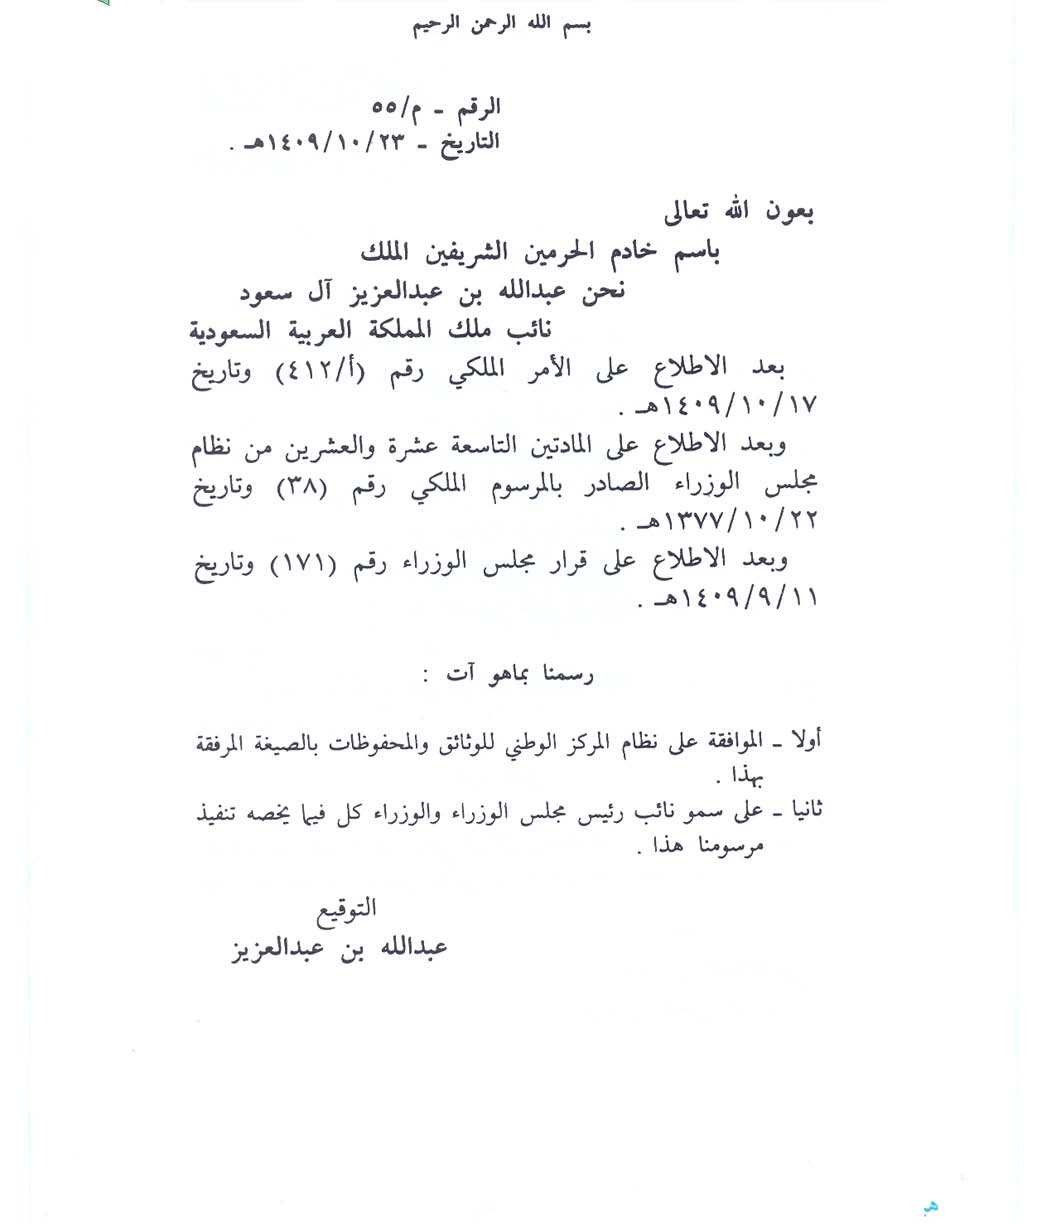 بسم الله الرحمن الرحيم
الرقم ـ م/٥٥
التاريخ ـ ١٤٠٩/١٠/٢٣هـ .
بعون الله تعالى
باسم خادم الحرمين الشريفين الملك
نحن عبدالله بن عبدالعزيز آل سعود
نائب ملك المملكة العربية السعودية
بعد الاطلاع على الأمر الملكي رقم (أ/٤١٢) وتاريخ
١٤٠٩/١٠/١٧هـ .
وبعد الاطلاع على المادتين التاسعة عشرة والعشرين من نظام
مجلس الوزراء الصادر بالمرسوم الملكي رقم (٣٨) وتاريخ
١٣٧٧/١٠/٢٢هـ .
وبعد الاطلاع على قرار مجلس الوزراء رقم (١٧١) وتاريخ
١٤٠٩/٩/١١هـ .
رسمنا بماهو آت :
أولا ـ الموافقة على نظام المركز الوطني للوثائق والمحفوظات بالصيغة المرفقة
بهذا .
ثانيا ـ على سمو نائب رئيس مجلس الوزراء والوزراء كل فيما يخصه تنفيذ
مرسومنا هذا .
التوقيع
عبدالله بن عبدالعزيز